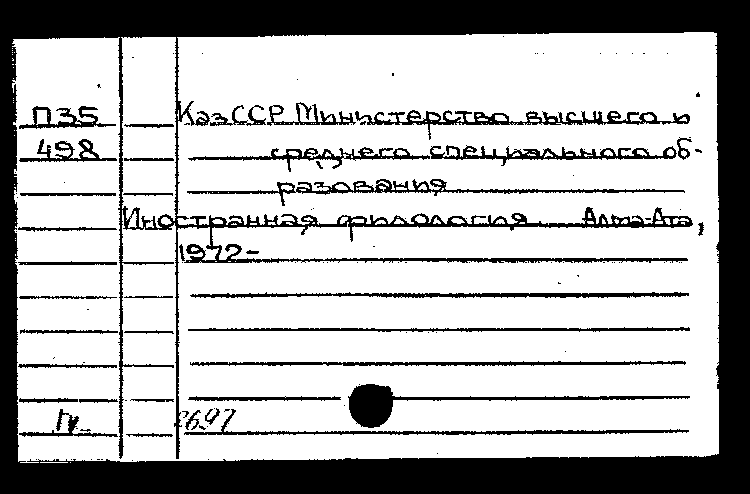 П35 КазССР Министерство высшего и
498 среднего специального об-
разования
Иностранная филология. Алма-Ата,
1972-
2697